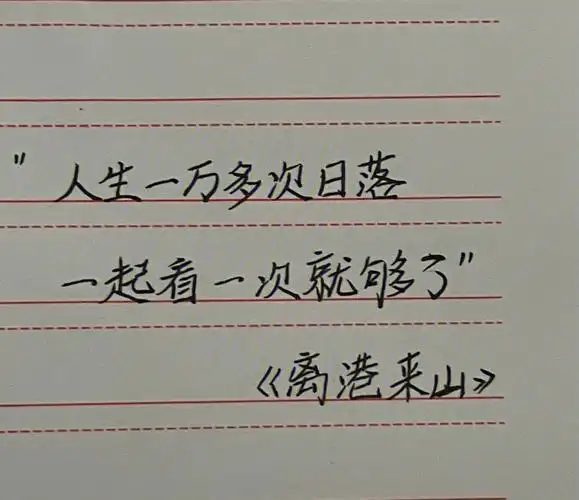 "人生一万多次日落
一起看一次就够了"
《离港来山》